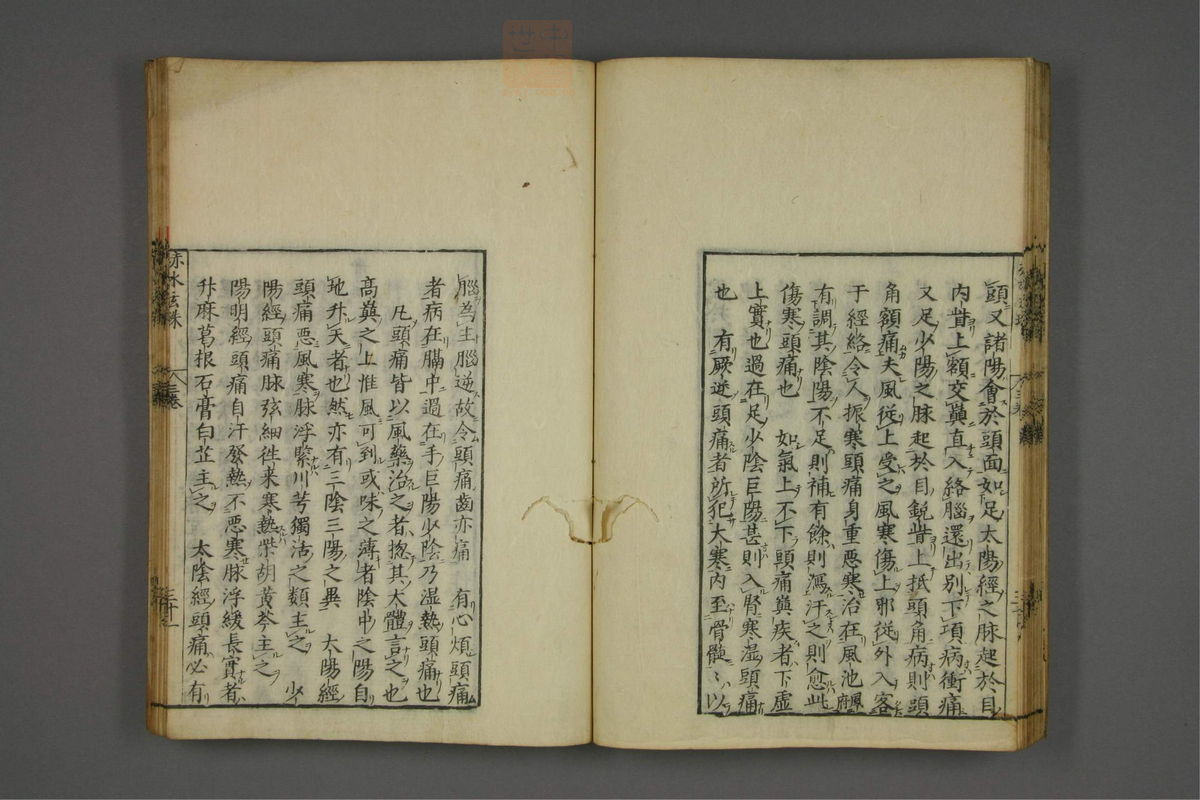 頭又諸陽會於頭面如足太陽經之脉起於目
内眥上額交巔直入絡腦還出別下項病衝痛
又足少陽之脉起於目銳眥上抵頭角病則頭
角額痛夫風從上受之風寒傷上邪從外入客
于經絡令人振寒頭痛身重惡寒治在風池風府
有調其陰陽不足則補有餘則瀉汗之則愈此
傷寒頭痛也　如氣上不下頭痛巔疾者下虛
上實也過在足少陰巨陽甚則入腎寒濕頭痛
也　有厥逆頭痛者所犯大寒内至骨髓〻以
腦為主腦逆故令頭痛齒亦痛　有心煩頭痛
者病在膈中過在手巨陽少陰乃湿熱頭痛也
凡頭痛皆以風藥治之者揔其大體言之也
高巔之上惟風可到或味之薄者陰中之陽自
地升天者也然亦有三陰三陽之異　太陽經
頭痛惡風寒脉浮緊川芎獨活之類主之　少
陽經頭痛脉弦細徃来寒熱柴胡黃芩主之
陽明經頭痛自汗發熱不惡寒脉浮緩長實者
升麻葛根石膏白芷主之　太陰經頭痛必有
赤水玄珠
三巻
三十一